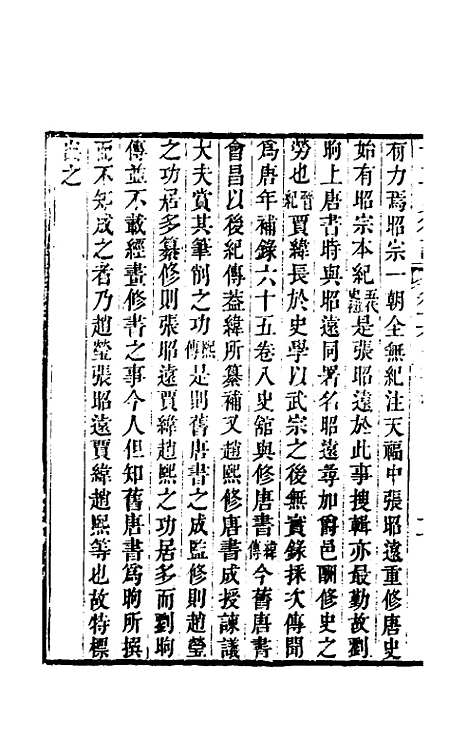 有力焉昭宗一朝全無紀注天福中張昭遠重修唐史
始有昭宗本紀五代史補是張昭遠於此事搜輯亦最勤故劉
昫上唐書時與昭遠同署名昭遠尋加爵邑酬修史之
勞也晉紀賈緯長於史學以武宗之後無實錄採次傳聞
爲唐年補錄六十五卷入史館與修唐書緯傳今舊唐書
會昌以後紀傳葢緯所纂補又趙熙修唐書成授諫議
大夫賞其筆削之功熙傳是則舊唐書之成監修則趙瑩
之功居多纂修則張昭遠賈緯趙熙之功居多而劉昫
傳並不載經畫修書之事今人但知舊唐書爲昫所撰
而不知成之者乃趙瑩張昭遠賈緯趙熙等也故特標
出之